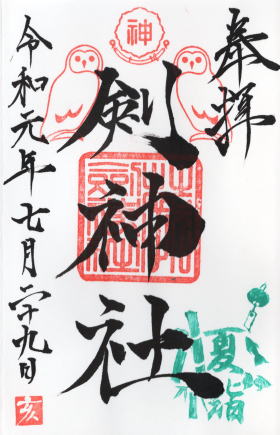 奉拝
剣神社
令和元年七月二十九日
神
夏詣
亥